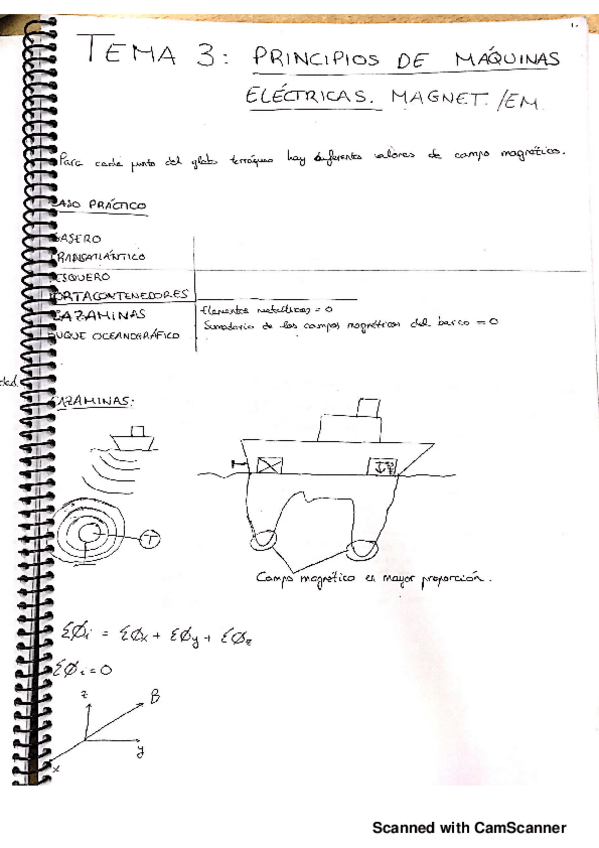 TEMA 3: PRINCIPIOS DE MÁQUINAS
ELÉCTRICAS. MAGNET./EM.
Para cada punto del globo terráqueo hay diferentes valores de campo magnético.
ASO PRÁCTICO
GASERO
TRANSATLÁNTICO
ESQUERO
PORTACONTENEDORES
CAZAMINAS
BUQUE OCEANOGRÁFICO
Elementos metálicos = 0
Sumatorio de los campos magnéticos del barco = 0
CAZAMINAS:
T
Campo magnético en mayor proporción.
ΣØi = ΣØx + ΣØy + ΣØz
ΣØi = 0
z
B
y
x
Scanned with CamScanner